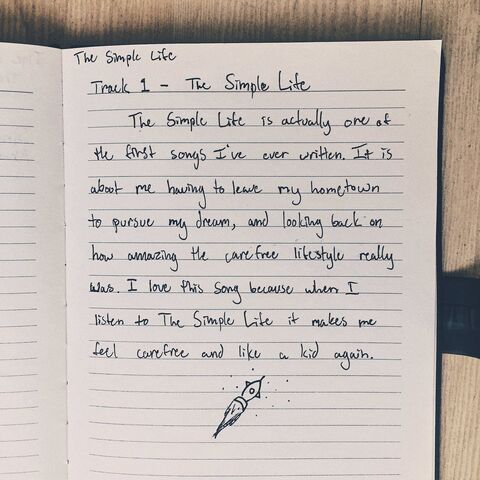 The Simple Life
Track 1 - The Simple Life
The Simple Life is actually one of
the first songs I've ever written. It is
about me having to leave my hometown
to pursue my dream, and looking back on
how amazing the carefree lifestyle really
was. I love this song because when I
listen to The Simple Life it makes me
feel carefree and like a kid again.